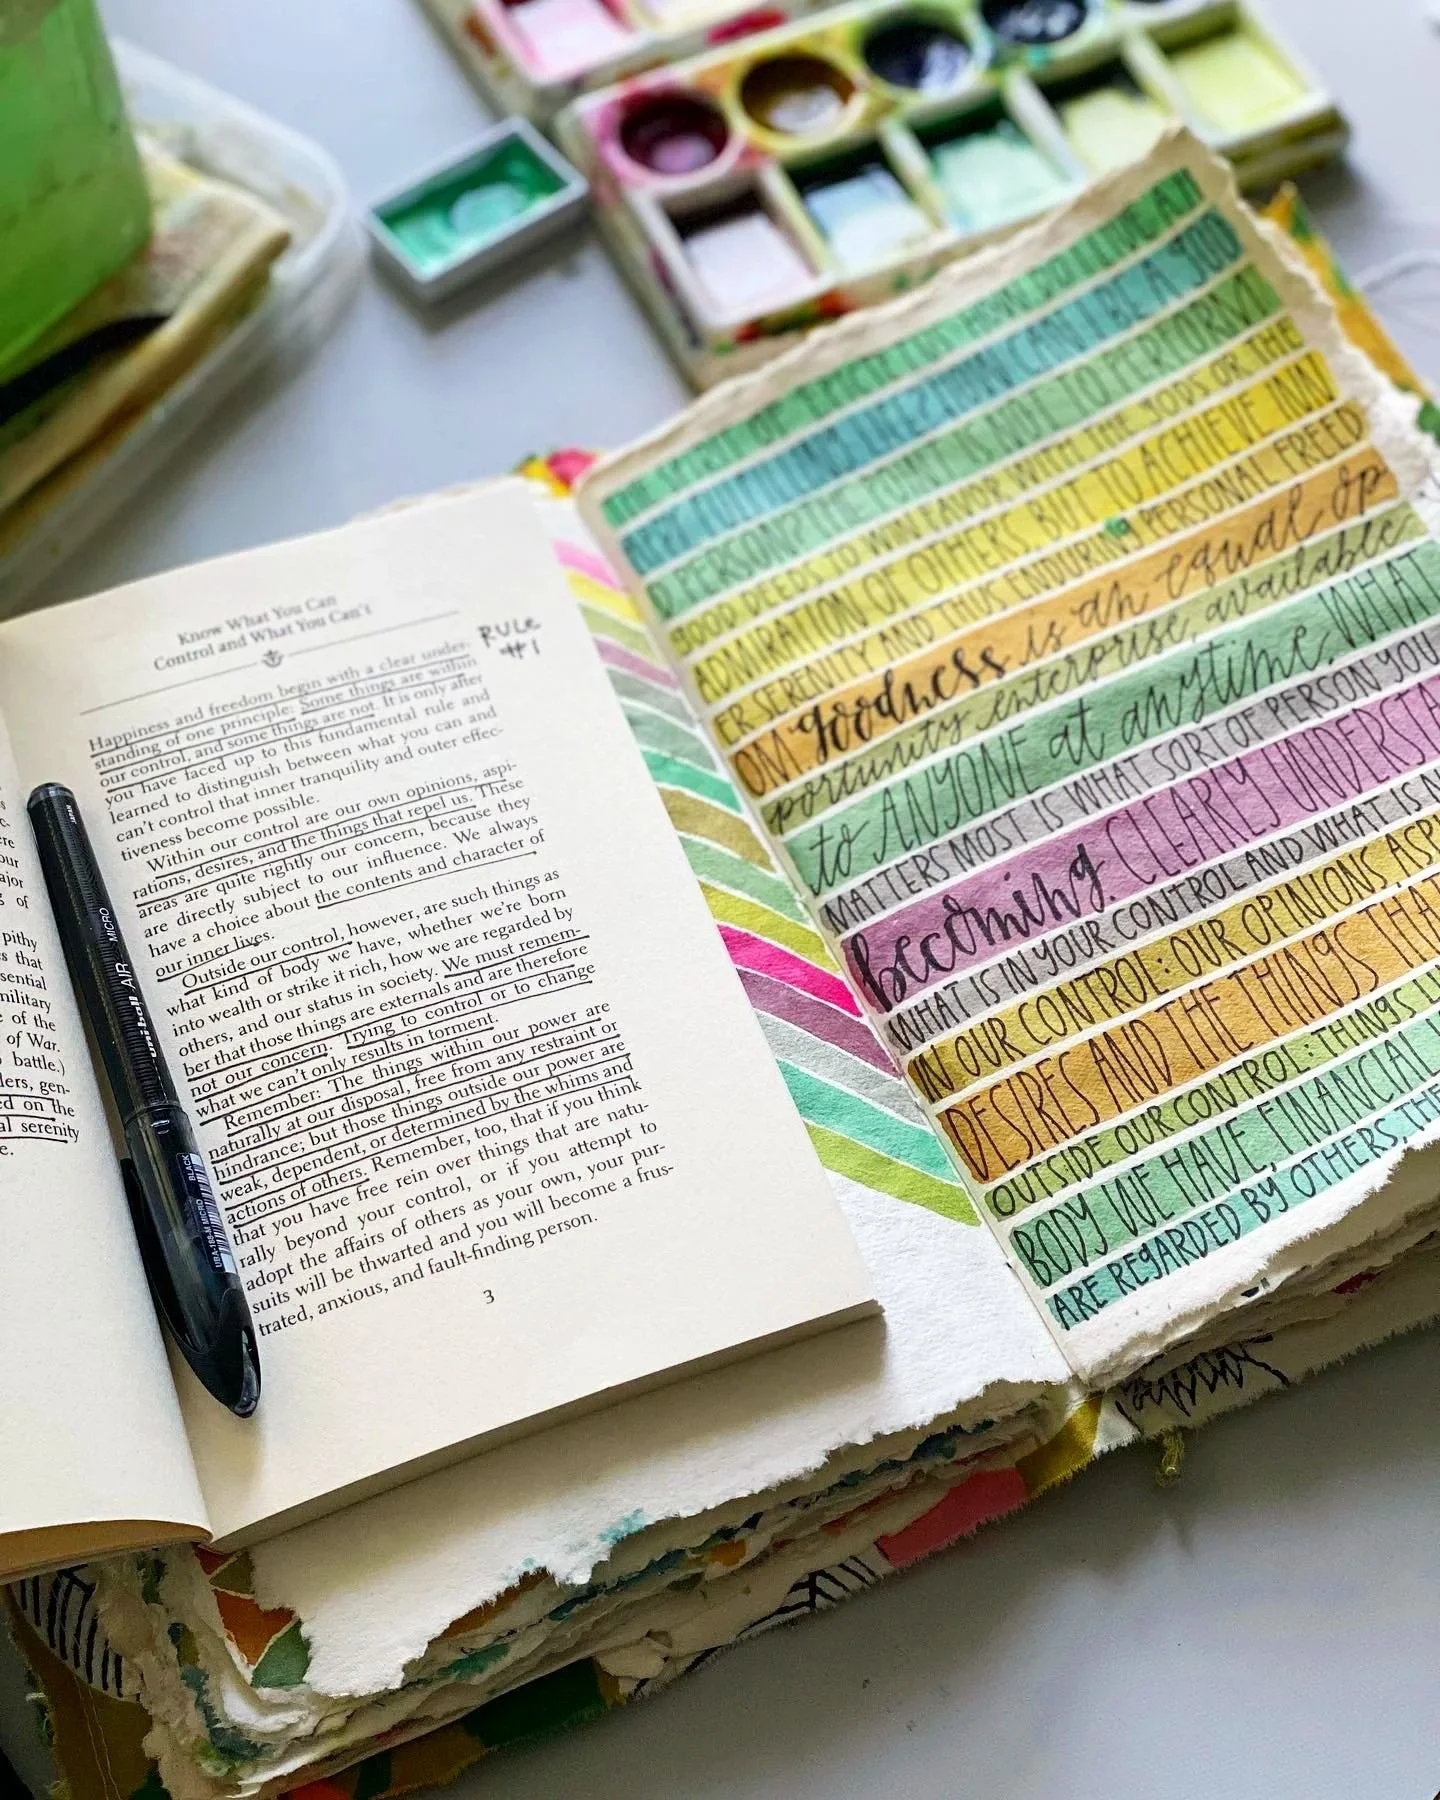 c-
ere
our
ajor
g of
pithy
es that
sential
military
e of the
of War.
o battle.)
ders, gen-
ed on the
al serenity
e.
uni-ball AIR MICRO
UBA-188-M MICRO BLACK
Know What You Can
Control and What You Can't
RULE
#1
Happiness and freedom begin with a clear under-
standing of one principle: Some things are within
our control, and some things are not. It is only after
you have faced up to this fundamental rule and
learned to distinguish between what you can and
can't control that inner tranquility and outer effec-
tiveness become possible.
Within our control are our own opinions, aspi-
rations, desires, and the things that repel us. These
areas are quite rightly our concern, because they
are directly subject to our influence. We always
have a choice about the contents and character of
our inner lives.
Outside our control, however, are such things as
what kind of body we have, whether we're born
into wealth or strike it rich, how we are regarded by
others, and our status in society. We must remem-
ber that those things are externals and are therefore
not our concern. Trying to control or to change
what we can't only results in torment.
Remember: The things within our power are
naturally at our disposal, free from any restraint or
hindrance; but those things outside our power are
weak, dependent, or determined by the whims and
actions of others. Remember, too, that if you think
that you have free rein over things that are natu-
rally beyond your control, or if you attempt to
adopt the affairs of others as your own, your pur-
suits will be thwarted and you will become a frus-
trated, anxious, and fault-finding person.
3
OF EPICTETUS: HOW DO I LIVE A H
FULFILLING LIFE? HOW CAN I BE A GOO
D PERSON? THE POINT IS NOT TO PERFORM
GOOD DEEDS TO WIN FAVOR WITH THE GODS OR THE
ADMIRATION OF OTHERS, BUT TO ACHIEVE INN
ER SERENITY AND THUS ENDURING PERSONAL FREED
OM. goodness is an equal op
portunity enterprise, available
to ANYONE at anytime. WHAT
MATTERS MOST IS WHAT SORT OF PERSON YOU
becoming. CLEARLY UNDERSTA
WHAT IS IN YOUR CONTROL AND WHAT IS N
IN OUR CONTROL: OUR OPINIONS, ASPI
DESIRES AND THE THINGS THA
OUTSIDE OUR CONTROL: THINGS LI
BODY WE HAVE, FINANCIAL
ARE REGARDED BY OTHERS, THE